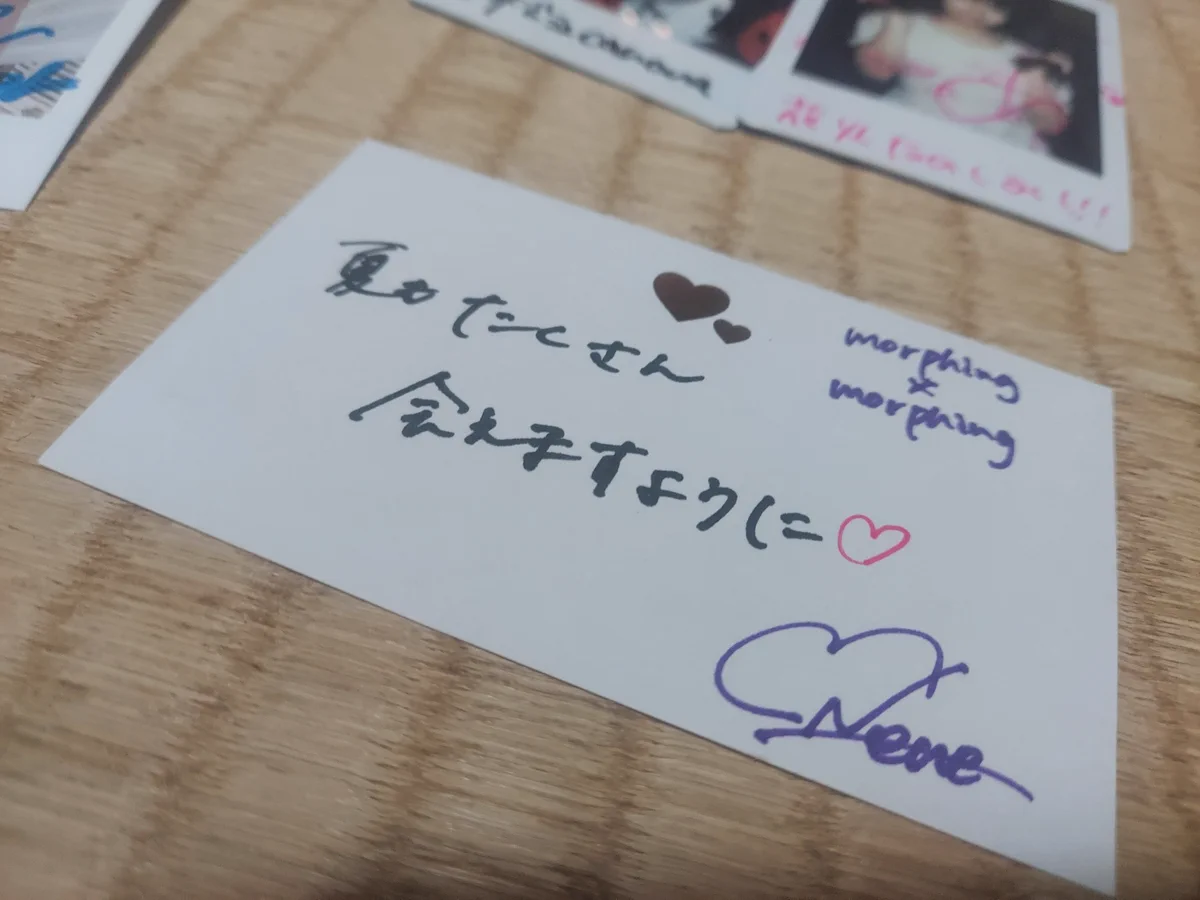 夏もたくさん
会えますように♡
morphing
×
morphing
Nene